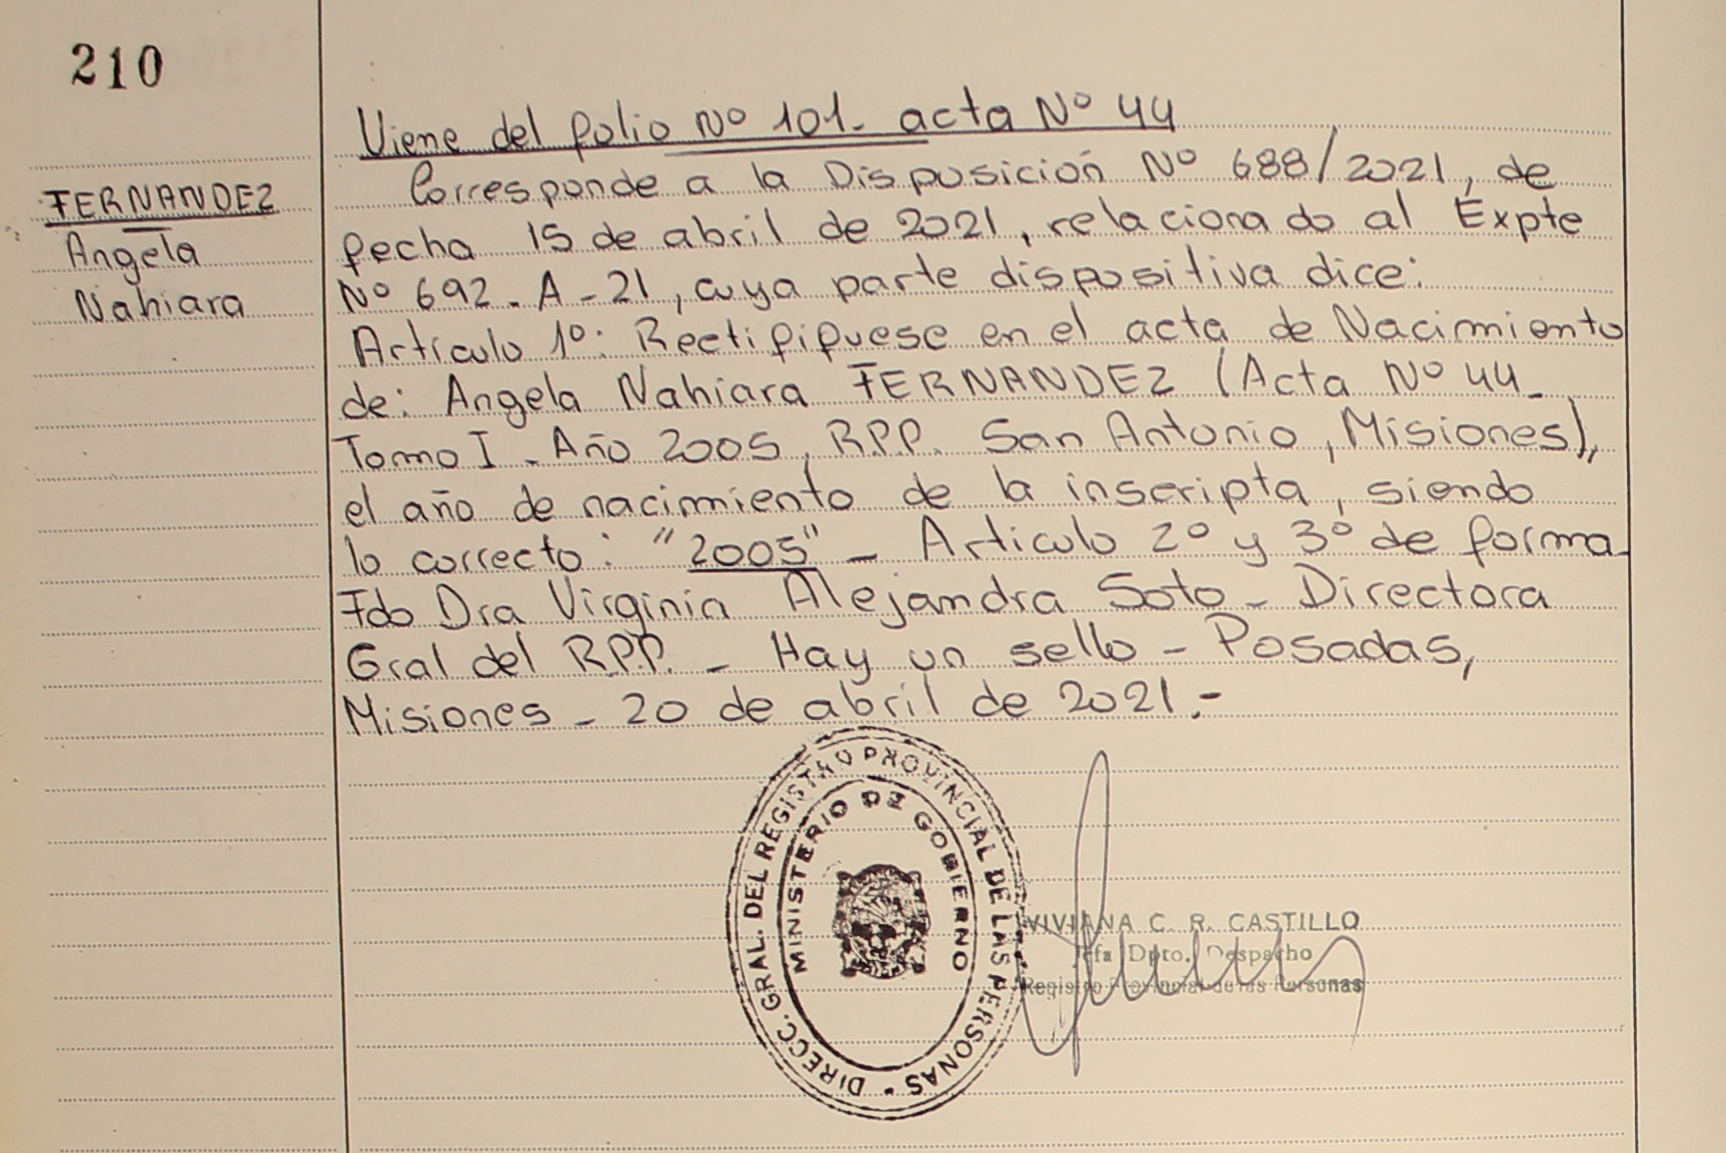 210
FERNANDEZ
Angela
Nahiara
Viene del folio Nº 101- acta Nº 44
Corresponde a la Disposición Nº 688/2021, de
fecha 15 de abril de 2021, relacionado al Expte
Nº 692-A-21, cuya parte dispositiva dice:
Artículo 1º: Rectifífuese en el acta de Nacimiento
de: Angela Nahiara FERNANDEZ (Acta Nº 44-
Tomo I - Año 2005, R.P.P. San Antonio, Misiones),
el año de nacimiento de la inscripta, siendo
lo correcto: "2005" - Articulo 2º y 3º de forma-
Fdo Dra Virginia Alejandra Soto - Directora
Gral del R.P.P. - Hay un sello - Posadas,
Misiones - 20 de abril de 2021.-
DIRECC. GRAL. DEL REGISTRO PROVINCIAL DE LAS PERSONAS
MINISTERIO DE GOBIERNO
VIVIANA C. R. CASTILLO
Jefa Dpto. Despacho
Registro Provincial de las Personas